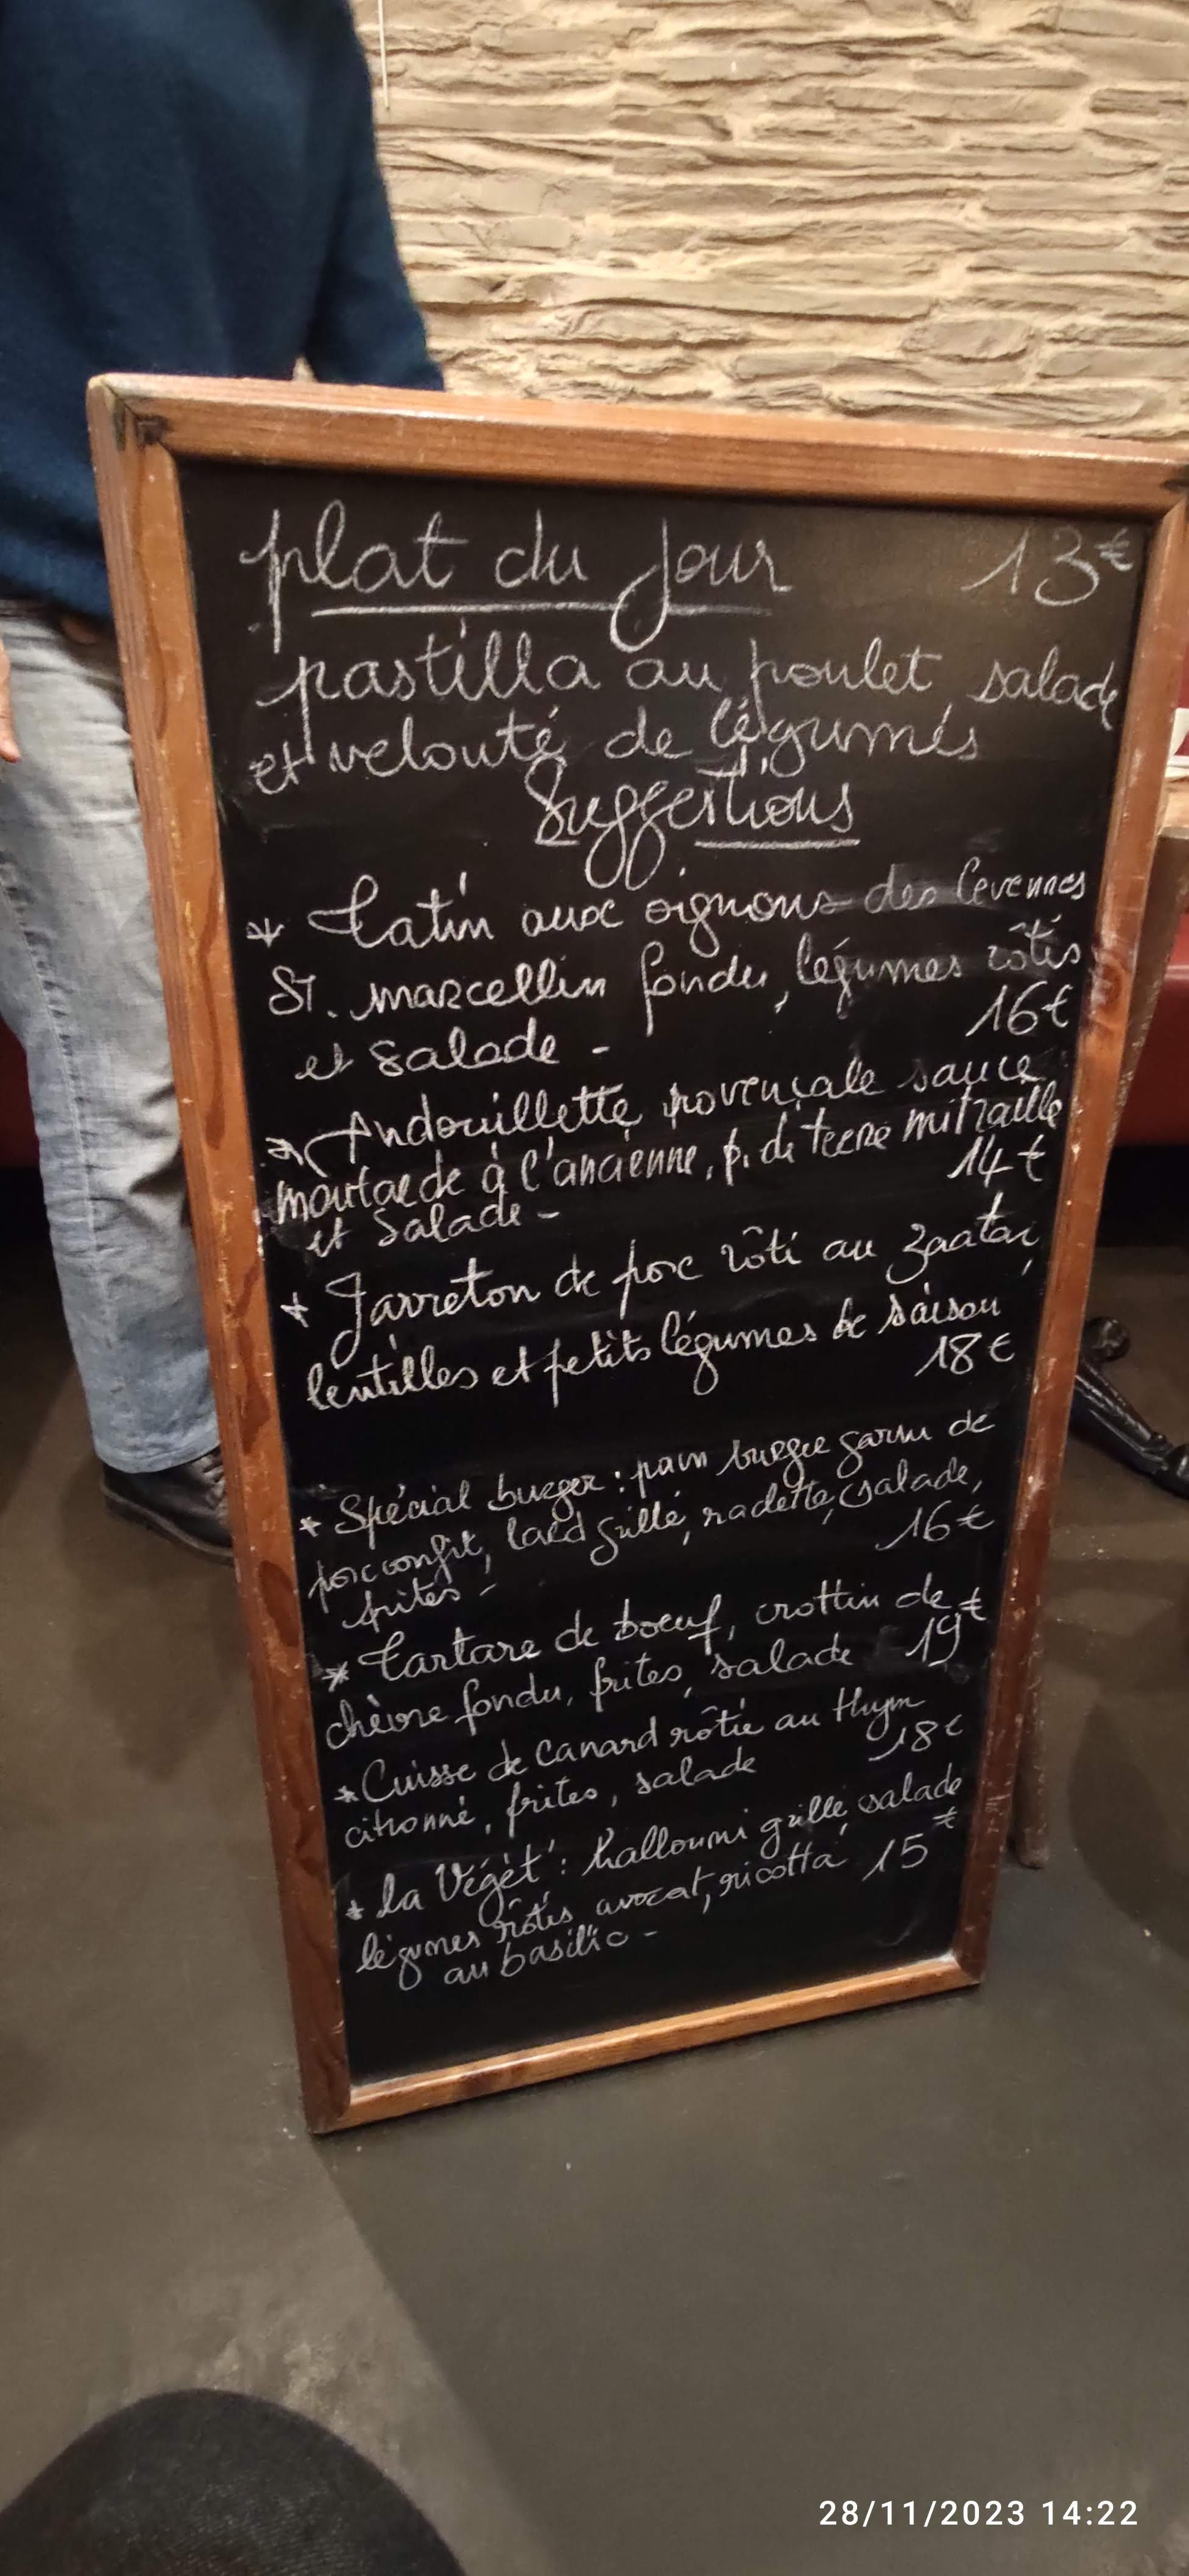 plat du jour 13€
pastilla au poulet salade
et velouté de légumes
Suggestions
* Tatin aux oignons des Cevennes
St. marcellin fondu, légumes rôtis
et salade - 16€
* Andouillette provençale sauce
moutarde à l'ancienne, p. de terre mitraille
et salade - 14€
* Jarreton de porc rôti au zaatar,
lentilles et petits légumes de saison
18€
* Spécial burger : pain burger garni de
porc confit, lard grillé, raclette, salade,
frites - 16€
* Tartare de boeuf, crottin de
chèvre fondu, frites, salade 19€
* Cuisse de Canard rôtie au thym
citronné, frites, salade 18€
* la Végét' : halloumi grillé, salade
légumes rôtis avocat, ricotta 15€
au basilic -
28/11/2023 14:22